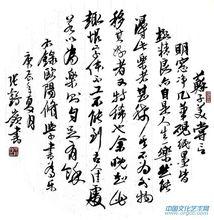 蘇子美嘗言
明窗淨几筆硯紙墨皆
極精良亦自是人生一樂然能
得此樂者甚稀其不為外物
移其好者又特稀也余晚知此
趣恨字體不工不能到古人佳處
若以為樂則自是有餘
右錄歐陽修學書為樂
夏月
張 書
中国文化艺术网